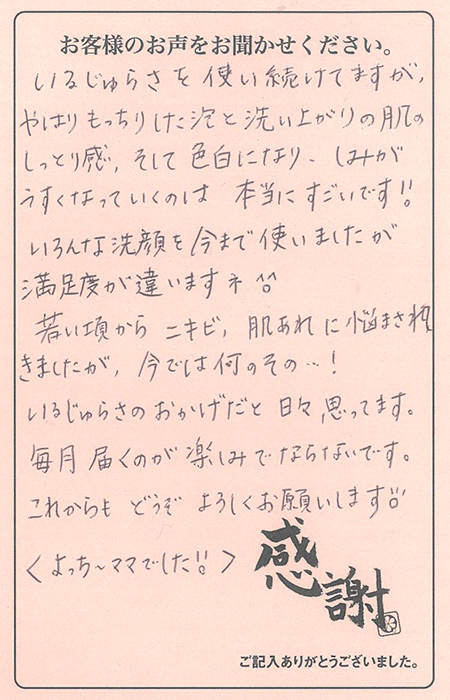 お客様のお声をお聞かせください。
いるじゅらさを使い続けてますが、
やはりもっちりした泡と洗い上がりの肌の
しっとり感、そして色白になり、しみが
うすくなっていくのは 本当にすごいです!!
いろんな洗顔を今まで使いましたが
満足度が違いますネ^^
若い頃から ニキビ、肌あれに悩まされ
きましたが、今では何のその…!
いるじゅらさのおかげだと 日々、思ってます。
毎月届くのが楽しみでならないです。
これからも どうぞ よろしくお願いします!!
〈よっち〜ママでした!!〉
感謝
ご記入ありがとうございました。